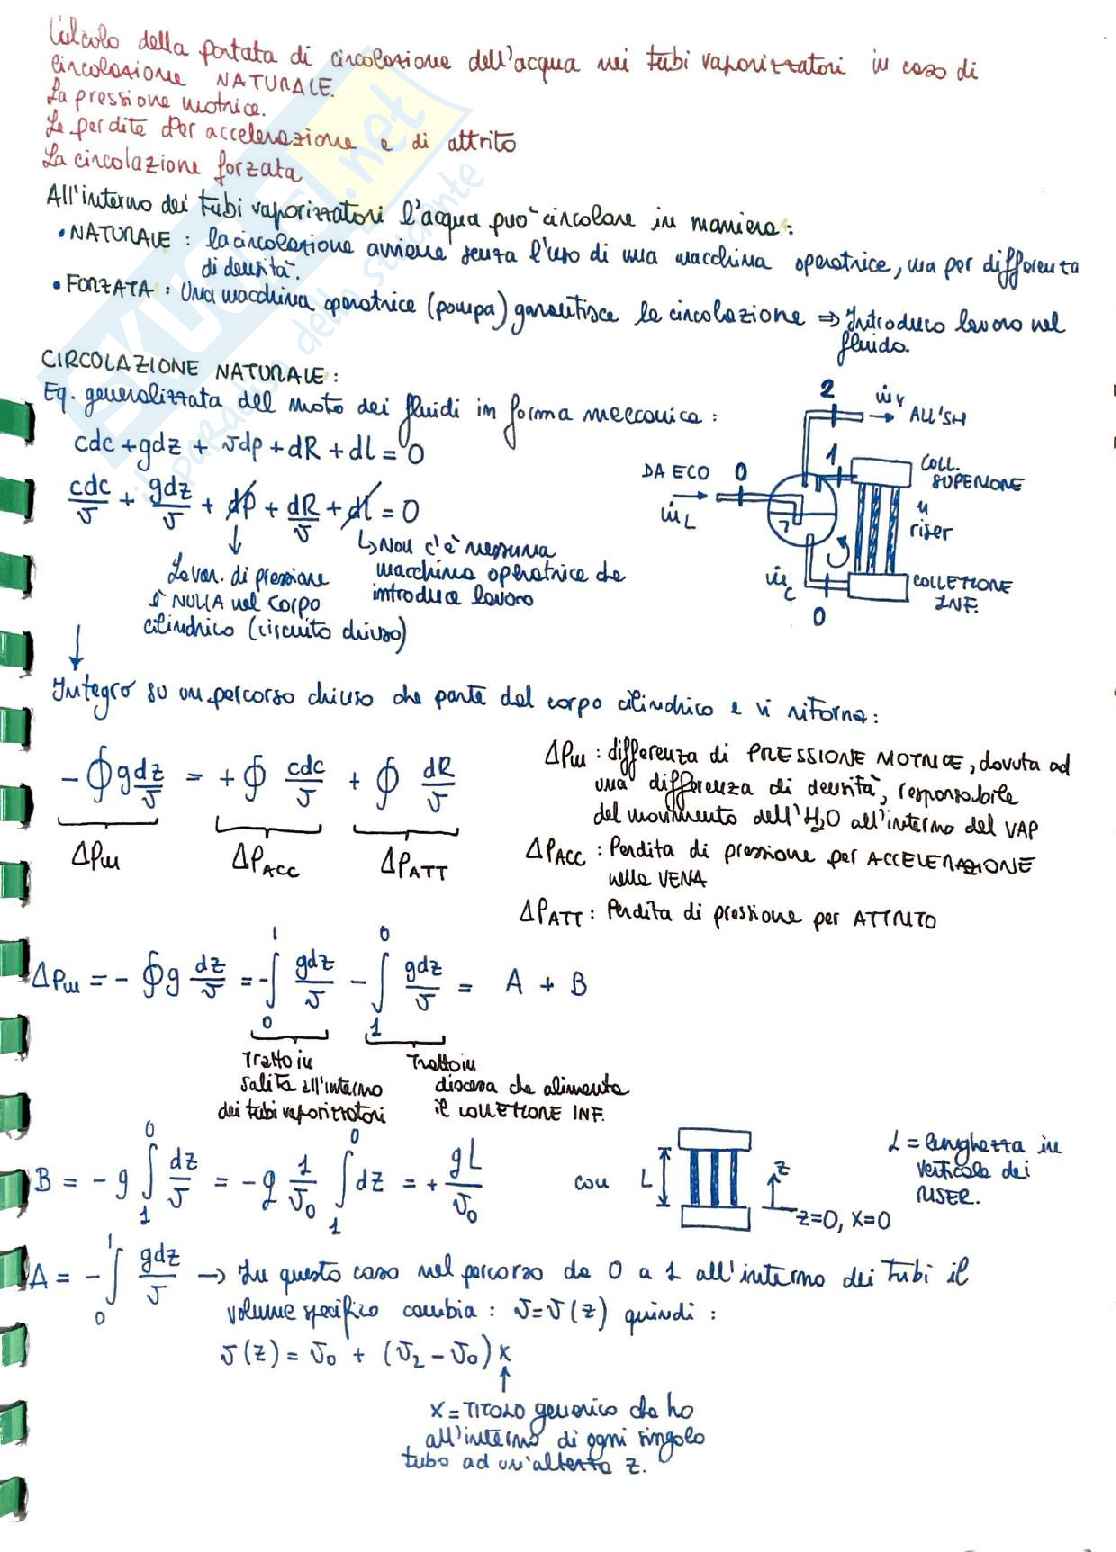 Calcolo della portata di circolazione dell'acqua nei tubi vaporizzatori in caso di
circolazione NATURALE.
La pressione motrice.
Le perdite per accelerazione e di attrito
La circolazione forzata
All'interno dei tubi vaporizzatori l'acqua può circolare in maniera:
• NATURALE : la circolazione avviene senza l'uso di una macchina operatrice, ma per differenza
di densità.
• FORZATA : Una macchina operatrice (pompa) garantisce la circolazione ⇒ Introduco lavoro nel
fluido.
CIRCOLAZIONE NATURALE :
Eq. generalizzata del moto dei fluidi in forma meccanica :
cdc + gdz + vdp + dR + dl = 0
cdc/v + gdz/v + dp + dR/v + dl = 0
↳ Non c'è nessuna
macchina operatrice che
introduce lavoro
Lavor. di pressione
è NULLA nel corpo
cilindrico (circuito chiuso)
2
ṁv
ALL'SH
DA ECO
0
1
ṁL
COLL.
SUPERIORE
riser
ṁc
COLLETTORE
INF.
0
Integro su un percorso chiuso che parte dal corpo cilindrico e vi ritorna :
- ∮ gdz/v = + ∮ cdc/v + ∮ dR/v
ΔPm ΔPACC ΔPATT
ΔPm : differenza di PRESSIONE MOTRICE, dovuta ad
una differenza di densità, responsabile
del movimento dell'H2O all'interno del VAP
ΔPACC : Perdita di pressione per ACCELERAZIONE
nella VENA
ΔPATT : Perdita di pressione per ATTRITO
ΔPm = - ∮ g dz/v = - ∫₀¹ gdz/v - ∫₁⁰ gdz/v = A + B
Tratto in
salita all'interno
dei tubi vaporizzatori
Tratto in
discesa che alimenta
il COLLETTORE INF.
B = - g ∫₁⁰ dz/v = - g 1/v₀ ∫₁⁰ dz = + gL/v₀ con L
z
z=0, x=0
L = lunghezza in
verticale dei
RISER.
A = - ∫₀¹ gdz/v → In questo caso nel percorso da 0 a 1 all'interno dei tubi il
volume specifico cambia : v=v(z) quindi :
v(z) = v₀ + (v₂ - v₀) x
x = TITOLO generico che ho
all'interno di ogni singolo
tubo ad un'altezza z.